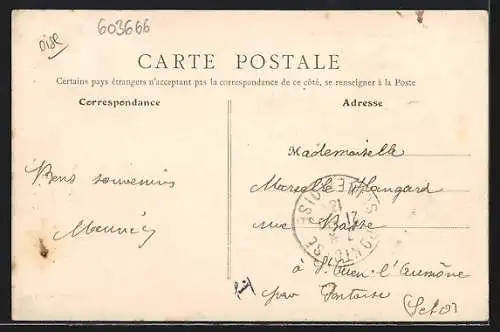 Oise
603666
CARTE POSTALE
Certains pays étrangers n'acceptant pas la correspondance de ce côté, se renseigner à la Poste
Correspondance
Adresse
Mademoiselle
Marcelle Hangard
rue Basse
à St Ouen-l'Aumône
par Pontoise
(S et O)
Bons souvenirs
Maurice